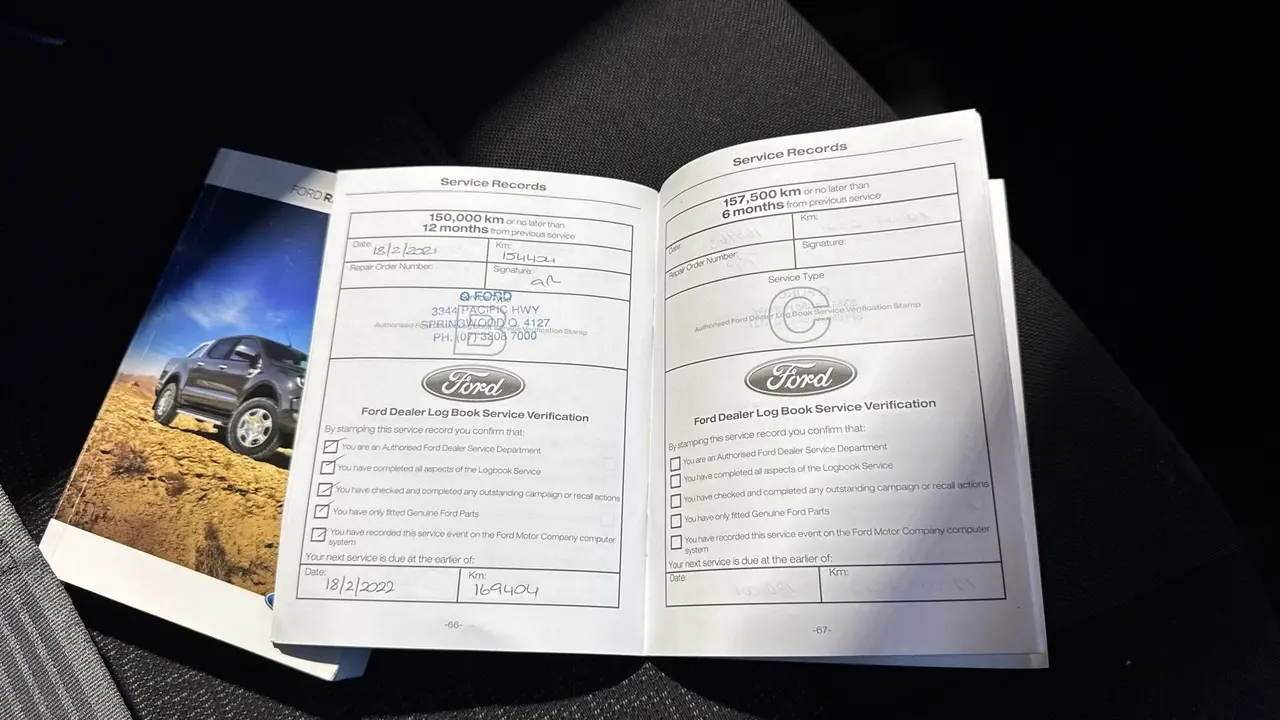 FORD R
Service Records
150,000 km or no later than
12 months from previous service
Date: 18/2/2021
Km: 154404
Repair Order Number:
Signature:
Service Type
Q FORD
3344 PACIFIC HWY
Authorised Ford Service Verification Stamp
SPRINGWOOD Q. 4127
B
PH. (07) 3208 7000
Ford
Ford Dealer Log Book Service Verification
By stamping this service record you confirm that:
You are an Authorised Ford Dealer Service Department
You have completed all aspects of the Logbook Service
You have checked and completed any outstanding campaign or recall actions
You have only fitted Genuine Ford Parts
You have recorded this service event on the Ford Motor Company computer
system
Your next service is due at the earlier of:
Date: 18/2/2022
Km: 169404
-66-
Service Records
157,500 km or no later than
6 months from previous service
Date:
Km:
Repair Order Number:
Signature:
Service Type
C
Authorised Ford Dealer Log Book Service Verification Stamp
Ford
Ford Dealer Log Book Service Verification
By stamping this service record you confirm that:
You are an Authorised Ford Dealer Service Department
You have completed all aspects of the Logbook Service
You have checked and completed any outstanding campaign or recall actions
You have only fitted Genuine Ford Parts
You have recorded this service event on the Ford Motor Company computer
system
Your next service is due at the earlier of:
Date:
Km:
-67-